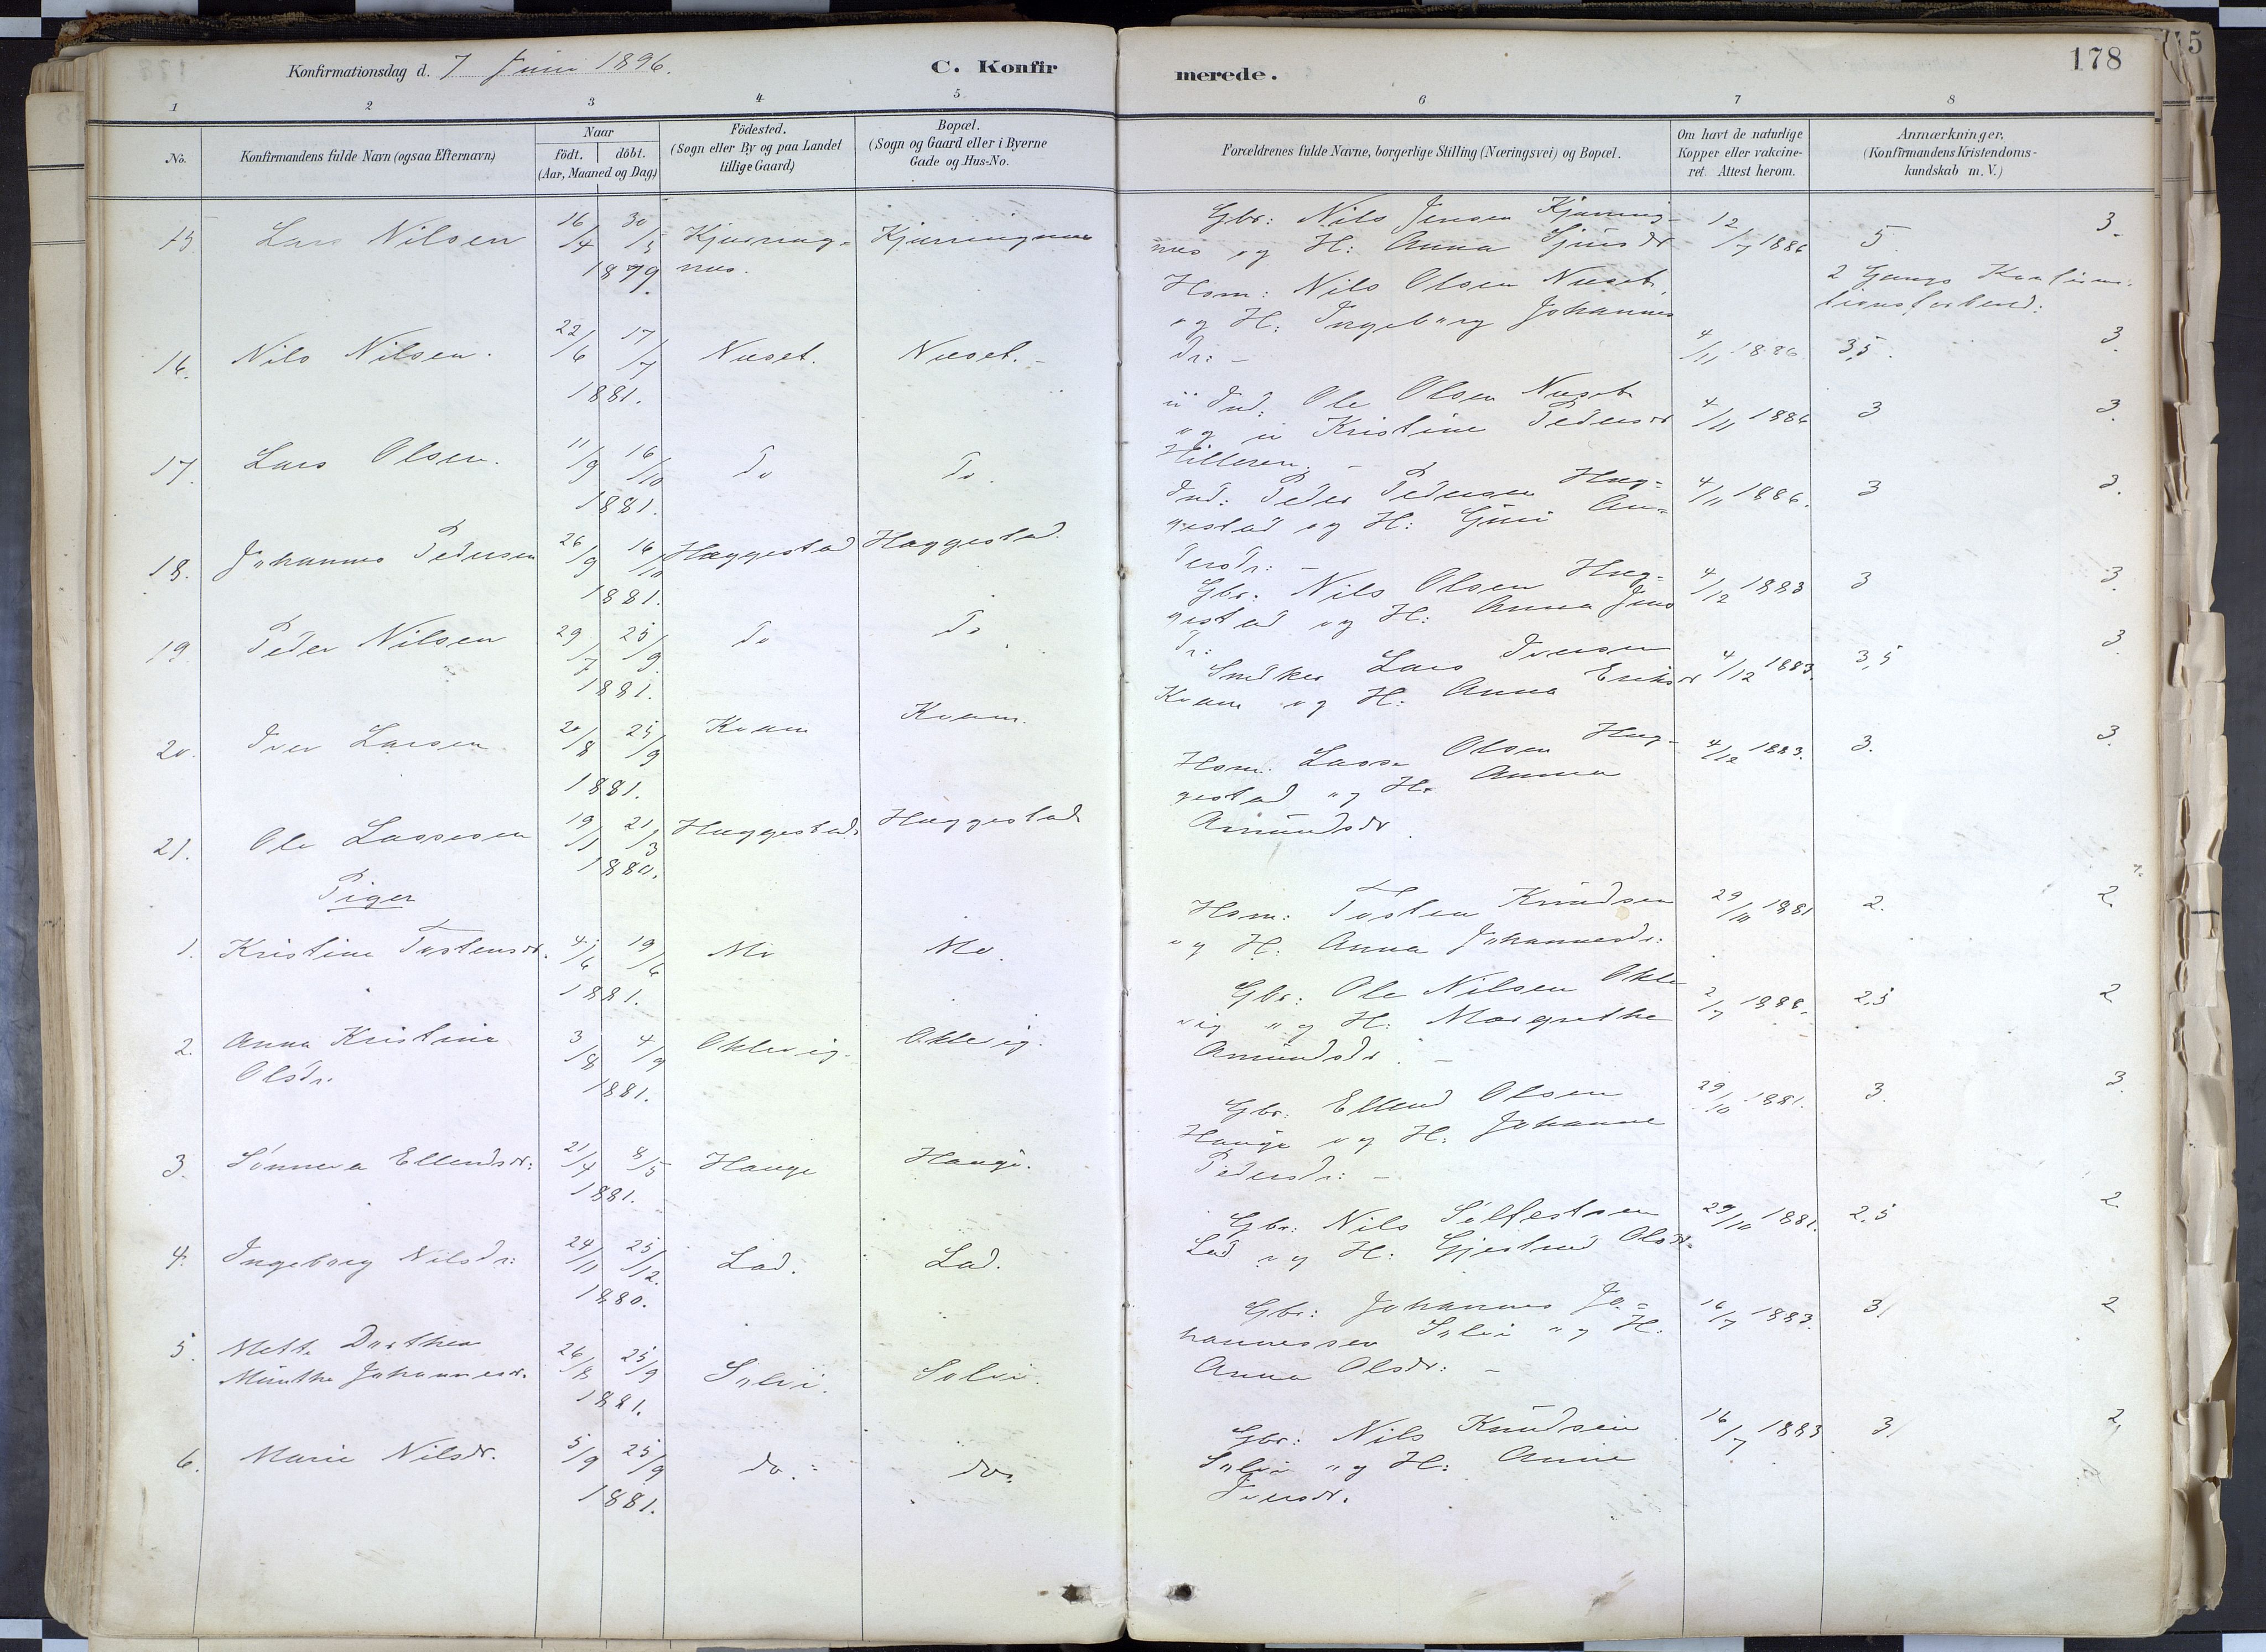 Konfirmationsdag d. 7 Juni 1896.
C. Konfirmerede.
178
1 2 3 4 5 6 7 8
No.
Konfirmandens fulde Navn (ogsaa Efternavn)
Naar
födt. döbt.
(Aar, Maaned og Dag)
Födested.
(Sogn eller By og paa Landet
tillige Gaard)
Bopæl.
(Sogn og Gaard eller i Byerne
Gade og Hus-No.
Forældrenes fulde Navne, borgerlige Stilling (Næringsvei) og Bopæl.
Om havt de naturlige
Kopper eller vakcine-
ret. Attest herom.
Anmærkninger.
(Konfirmandens Kristendoms-
kundskab m. V.)
15. Lars Nilsen 16/4 30/5 1879.
Gbr: Nils Jensen
og H: Anna 12/7 1886 5. 3.
2 Gange
16. Nils Nilsen. 22/6 17/7 1881. Nuset. Nuset.-
Hsm: Nils Olsen Nuset,
og H: Ingeborg Johannes
dr: - 4/11 1886. 3,5. 3.
17. Lars Olsen. 11/9 16/10 1881. Do Do.
Ole Olsen Nuset
og Kristine Pedersdr 4/11 1886 3 3.
Hilleren. -
18. Johannes Pedersen 26/9 16/10 1881. Haggestad Haggestad.
Ind: Peder Pedersen Hag-
gestad og H: Guri An- 4/11 1886. 3 3.
dersdr: -
19. Peder Nilsen 29/7 25/9. 1881. Do Do.
Gbr: Nils Olsen Hag-
gestad og H: Anna Jens 4/12 1883 3 3.
dr:
20. Iver Larsen 20/8 25/9 1881. Kvam Kvam.
Snedker Lars Iversen
Kvam og H: Anna Eriksdr 4/12 1883. 3,5 3.
21. Ole Lassesen 19/1 21/3 1880. Haggestad. Haggestad
Hsm: Lasse Olsen Hag-
gestad og H: Anna 4/12 1883. 3. 3.
Amundsdr.
Piger
1. Kristine Tostensdr. 4/6 19/6 1881. Mo Mo.
Hsm: Tosten Knudsen
og H: Anna Johannesdr: 29/10 1881 2. 2.
2. Anna Kristine
Olsdr. 3/8 4/9 1881. Oklevig. Oklevig.
Gbr: Ole Nilsen Okle
vig og H: Margrethe 2/7 1888. 2,5 2
Amundsdr. -
3. Sønneva Ellendsdr: 21/4 8/5 1881. Hauge Hauge.
Gbr: Ellend Olsen
Hauge og H: Johanne 29/10 1881. 3. 3.
Pedersdr: -
4. Ingeborg Nilsdr: 24/11 25/12. 1880. Lad. Lad.
Gbr: Nils Sølfestsen
Lad og H: Gjertrud Olsdr. 29/10 1881. 2,5 2
5. Mette Dorthea
Munthe Johannesdr. 26/8 25/9 1881. Solvi. Solvi.
Gbr: Johannes Jo-
hannessen Solvi og H: 16/7 1883. 3 2
Anna Olsdr: -
6. Marie Nilsdr. 5/9 25/9 1881. do. do.
Gbr: Nils Knudsen
Solvi og H: Anna 16/7 1883 3 2,
Iversdr.